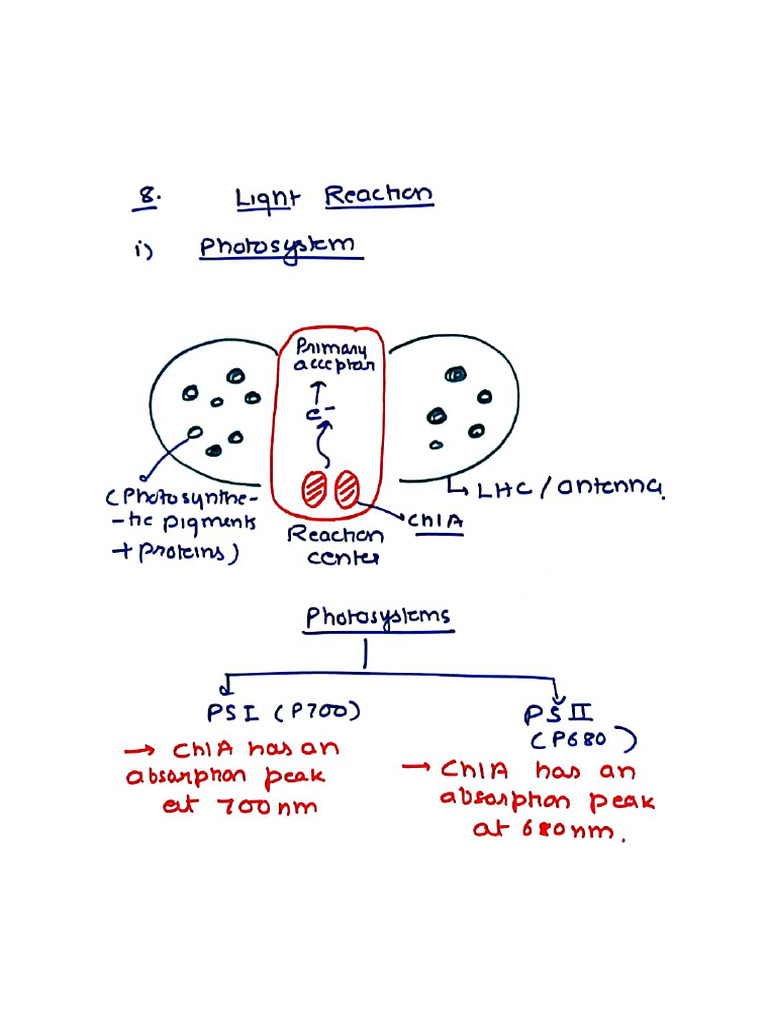 8. Light Reaction
i) Photosystem
Primary
acceptor
e-
(Photosynthe-
-tic pigments
+ proteins)
LHC / antenna.
Chl A
Reaction
center
Photosystems
PS I (P700)
→ Chl A has an
absorption peak
at 700nm
PS II
(P680)
→ Chl A has an
absorption peak
at 680nm.